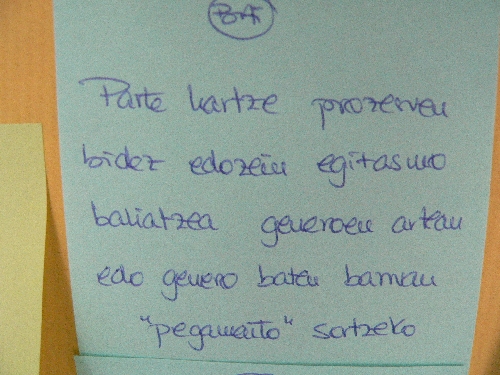 Parte hartze prozesuen
bidez edozein egitasmo
baliatzea generoen artean
edo genero baten barnean
"pegamaito" sortzeko